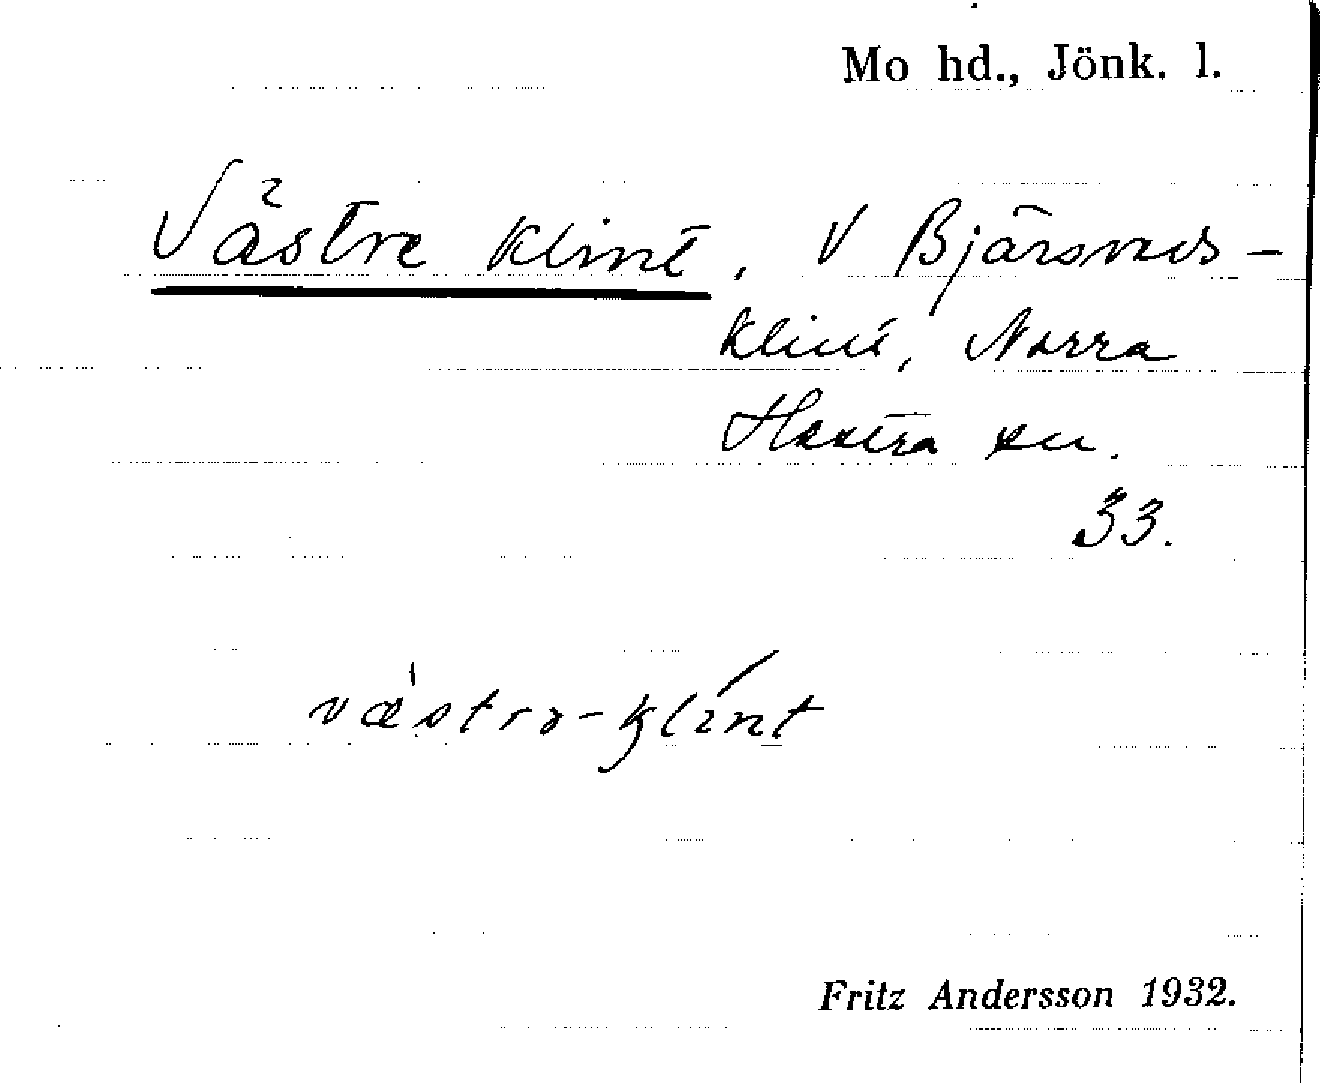 Mo hd., Jönk. l.
Västre klint, V Bjärsves-
klint, Norra
Hestra sn.
33.
væstrə-klint
Fritz Andersson 1932.